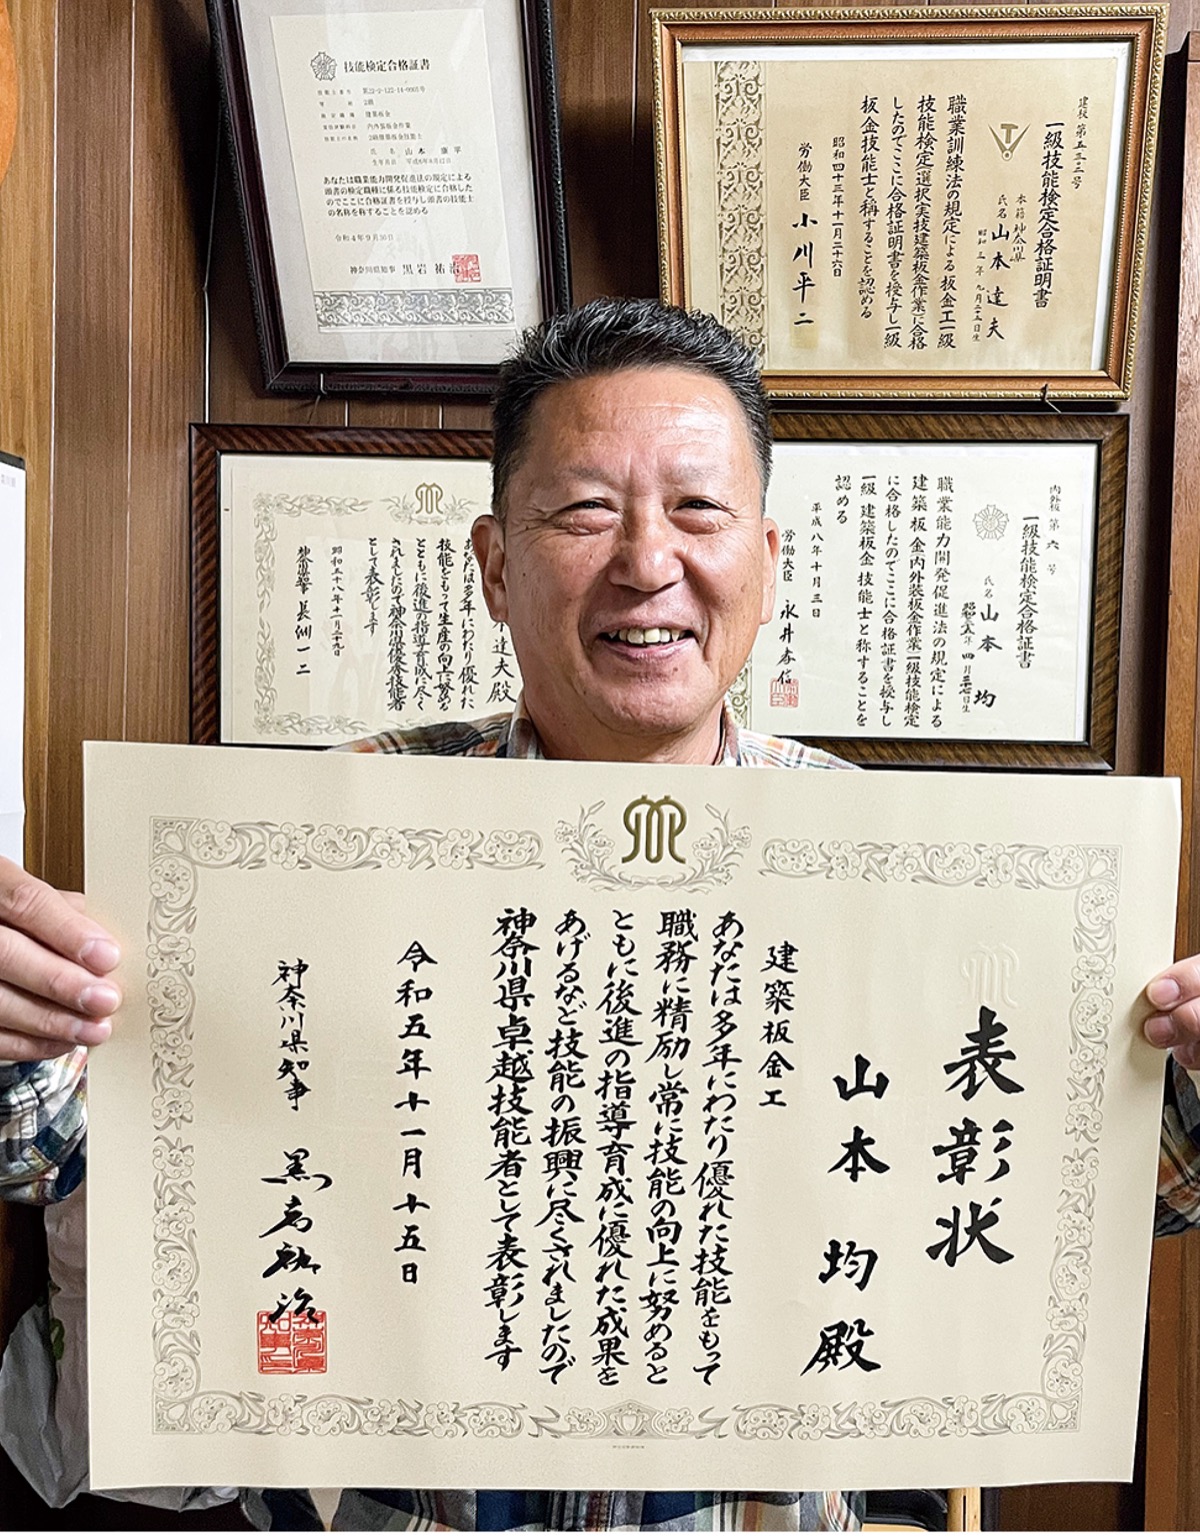 技能検定合格証書
第22-2-122-14-0005号
2級
建築板金
内外装板金作業
2級建築板金技能士
氏名 山本 康平
あなたは職業能力開発促進法の規定による
頭書の検定職種に係る技能検定に合格した
のでここに合格証書を授与し頭書の技能士
の名称を称することを認める
令和4年9月30日
神奈川県知事 黒岩祐治
建板 第五三三号
一級技能検定合格証明書
本籍 神奈川県
氏名 山本達夫
昭和三年九月二五日生
職業訓練法の規定による板金工一級
技能検定選択実技建築板金作業に合格
したのでここに合格証明書を授与し一級
板金技能士と称することを認める
昭和四十三年十一月二十六日
労働大臣 小川平二
内外板 第六号
一級技能検定合格証書
氏名 山本 均
職業能力開発促進法の規定による
建築板金内外装板金作業一級技能検定
に合格したのでここに合格証書を授与し
一級建築板金技能士と称することを
認める
平成八年十月三日
労働大臣 永井孝信
達夫殿
あなたは多年にわたり優れた
技能をもって生産の向上に努める
とともに後進の指導育成に尽く
されましたので神奈川県優秀技能者
として表彰します
昭和五十八年十一月二十九日
神奈川県知事 長洲一二
表彰状
山本 均 殿
建築板金工
あなたは多年にわたり優れた技能をもって
職務に精励し常に技能の向上に努めると
ともに後進の指導育成に優れた成果を
あげるなど技能の振興に尽くされましたので
神奈川県卓越技能者として表彰します
令和五年十一月十五日
神奈川県知事 黒岩祐治